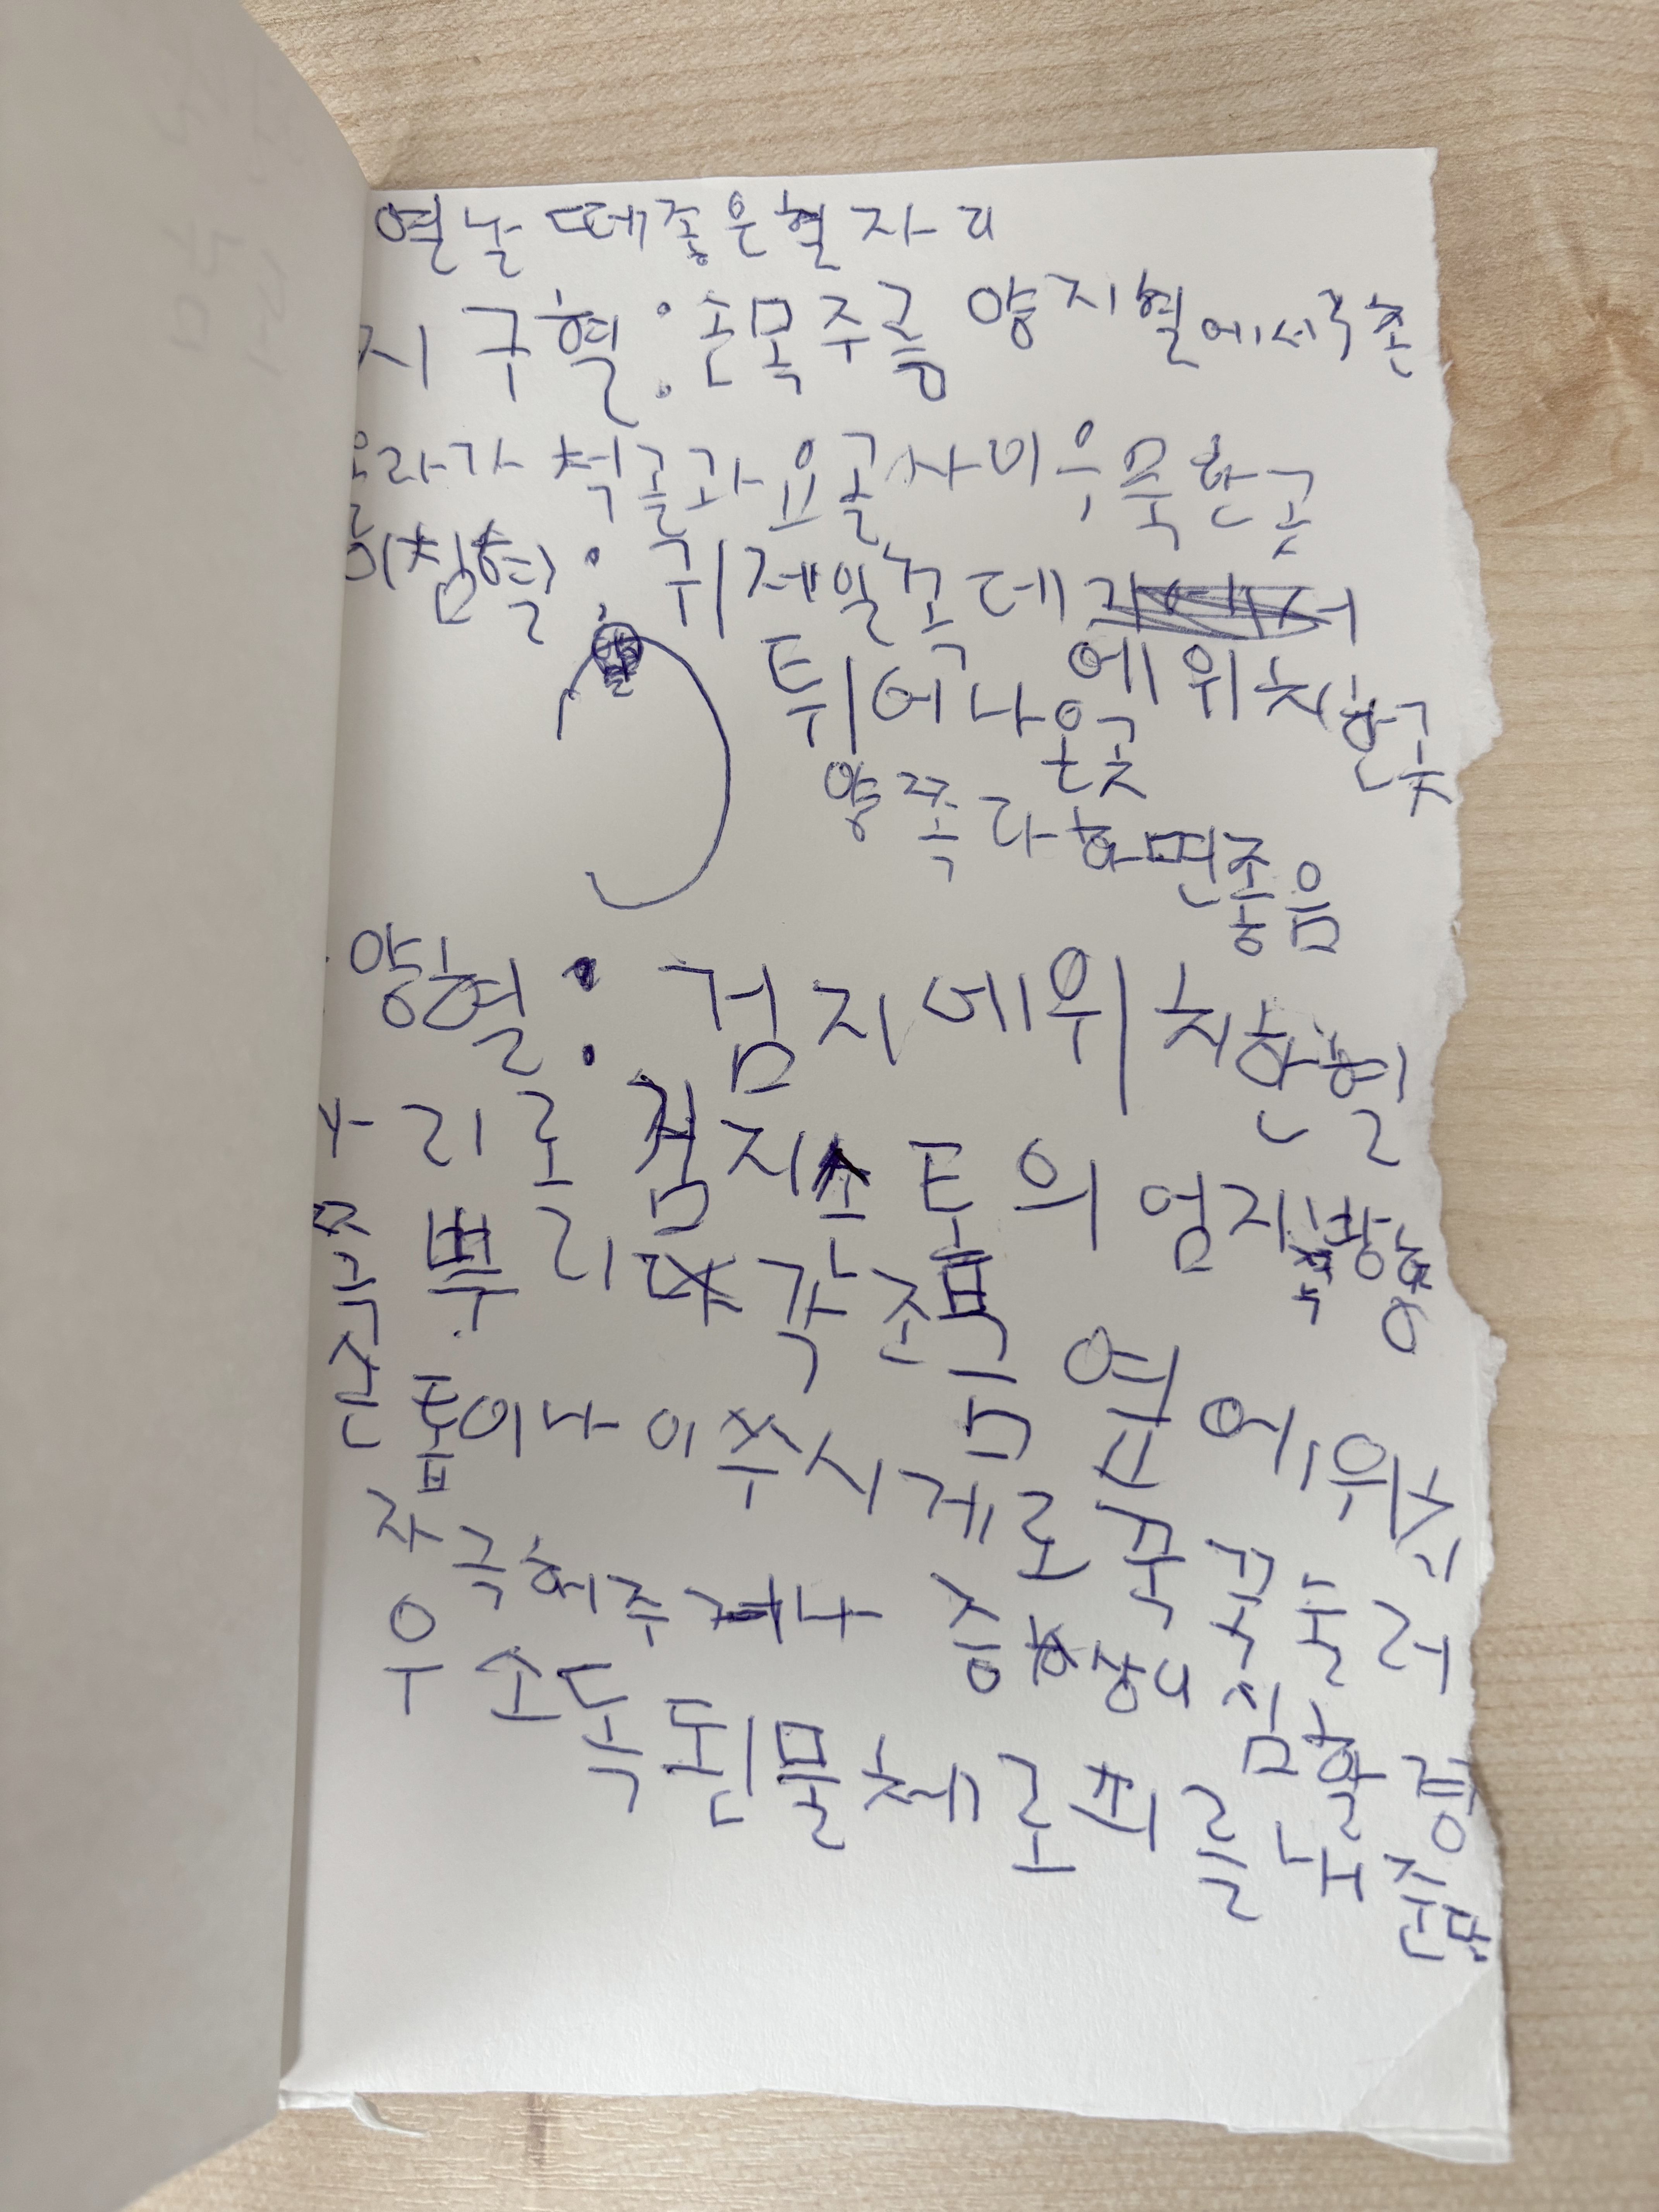 열날 때좋은혈자리
지구혈:손목주름 양지혈에서3촌
올라가 척골과요골사이우묵한곳
이침혈: 귀제일꼭데기
에위치한곳
튀어나온곳
양쪽다하면좋음
양혈: 검지에위치한혈
자리로 검지손톱의 엄지방향
쪽 뿌리 각 조금 옆에위치
손톱이나 이쑤시게로 꾹꾹눌러
자극해주거나 증상이 심할경
우 소독된물체로피를 내준다.